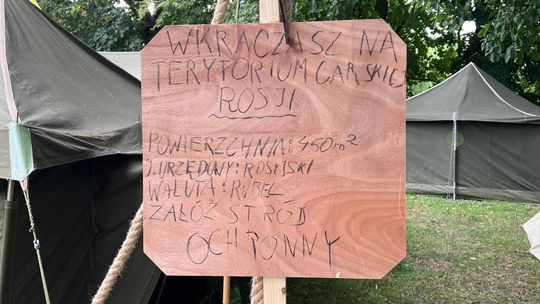 WKRACZASZ NA
TERYTORIUM CARSKIEJ
ROSJI
POWIERZCHNIA: 450m²
J. URZĘDOWY: ROSYJSKI
WALUTA: RUBEL
ZAŁÓŻ STRÓJ
OCHRONNY